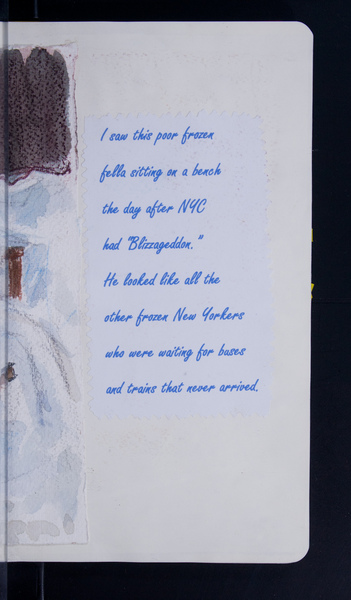 I saw this poor frozen
fella sitting on a bench
the day after NYC
had "Blizzageddon."
He looked like all the
other frozen New Yorkers
who were waiting for buses
and trains that never arrived.